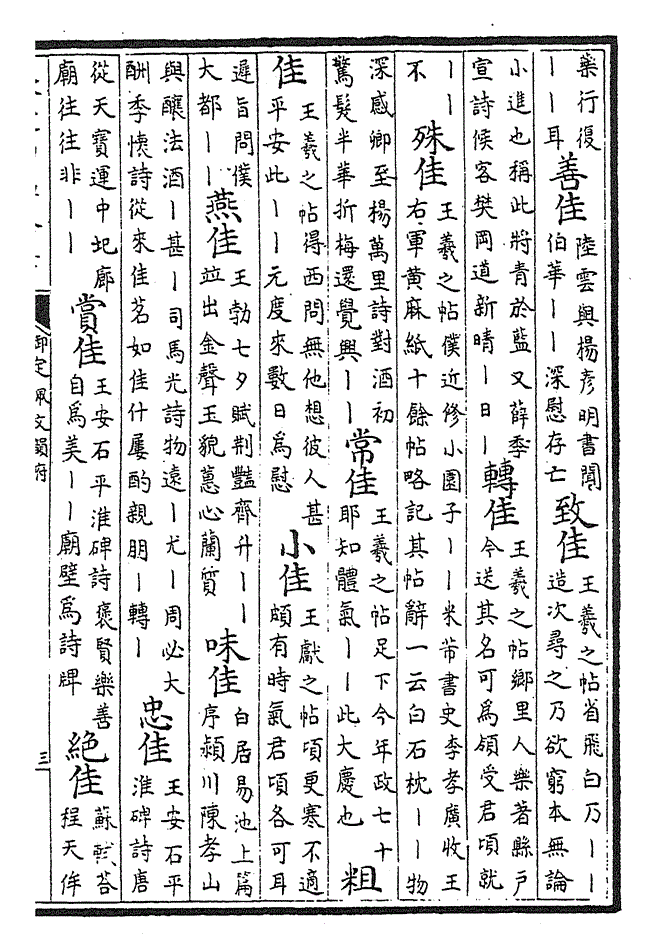 藥行復
丨丨耳
善佳
陸雲與楊彥明書聞
伯華丨丨深慰存亡
致佳
王羲之帖省飛白乃丨丨
造次尋之乃欲窮本無論
小進也稱此將青於藍又薛季
宣詩候客樊岡道新晴丨日丨
轉佳
王羲之帖鄉里人樂著縣戶
今送其名可為領受君頃就
丨丨
不
殊佳
王羲之帖僕近修小園子丨丨米芾書史李孝廣收王
右軍黃麻紙十餘帖略記其帖辭一云白石枕丨丨物
深感卿至楊萬里詩對酒初
驚髮半華折梅還覺興丨丨
常佳
王羲之帖足下今年政七十
耶知體氣丨丨此大慶也
粗
佳
王羲之帖得西問無他想彼人甚
平安此丨丨元度來數日為慰
小佳
王獻之帖頃更寒不適
頗有時氣君頃各可耳
遲旨問僕
大都丨丨
燕佳
王勃七夕賦荆豔齊升丨丨
竝出金聲玉貌蕙心蘭質
味佳
白居易池上篇
序潁川陳孝山
與釀法酒丨甚丨司馬光詩物遠丨尤丨周必大
酬季懷詩從來佳茗如佳什屢酌親朋丨轉丨
忠佳
王安石平
淮碑詩唐
從天寶運中圮廊
廟往往非丨丨
賞佳
王安石平淮碑詩褒賢樂善
自為美丨丨廟壁為詩牌
絕佳
蘇軾荅
程天侔
御定佩文韻府
三